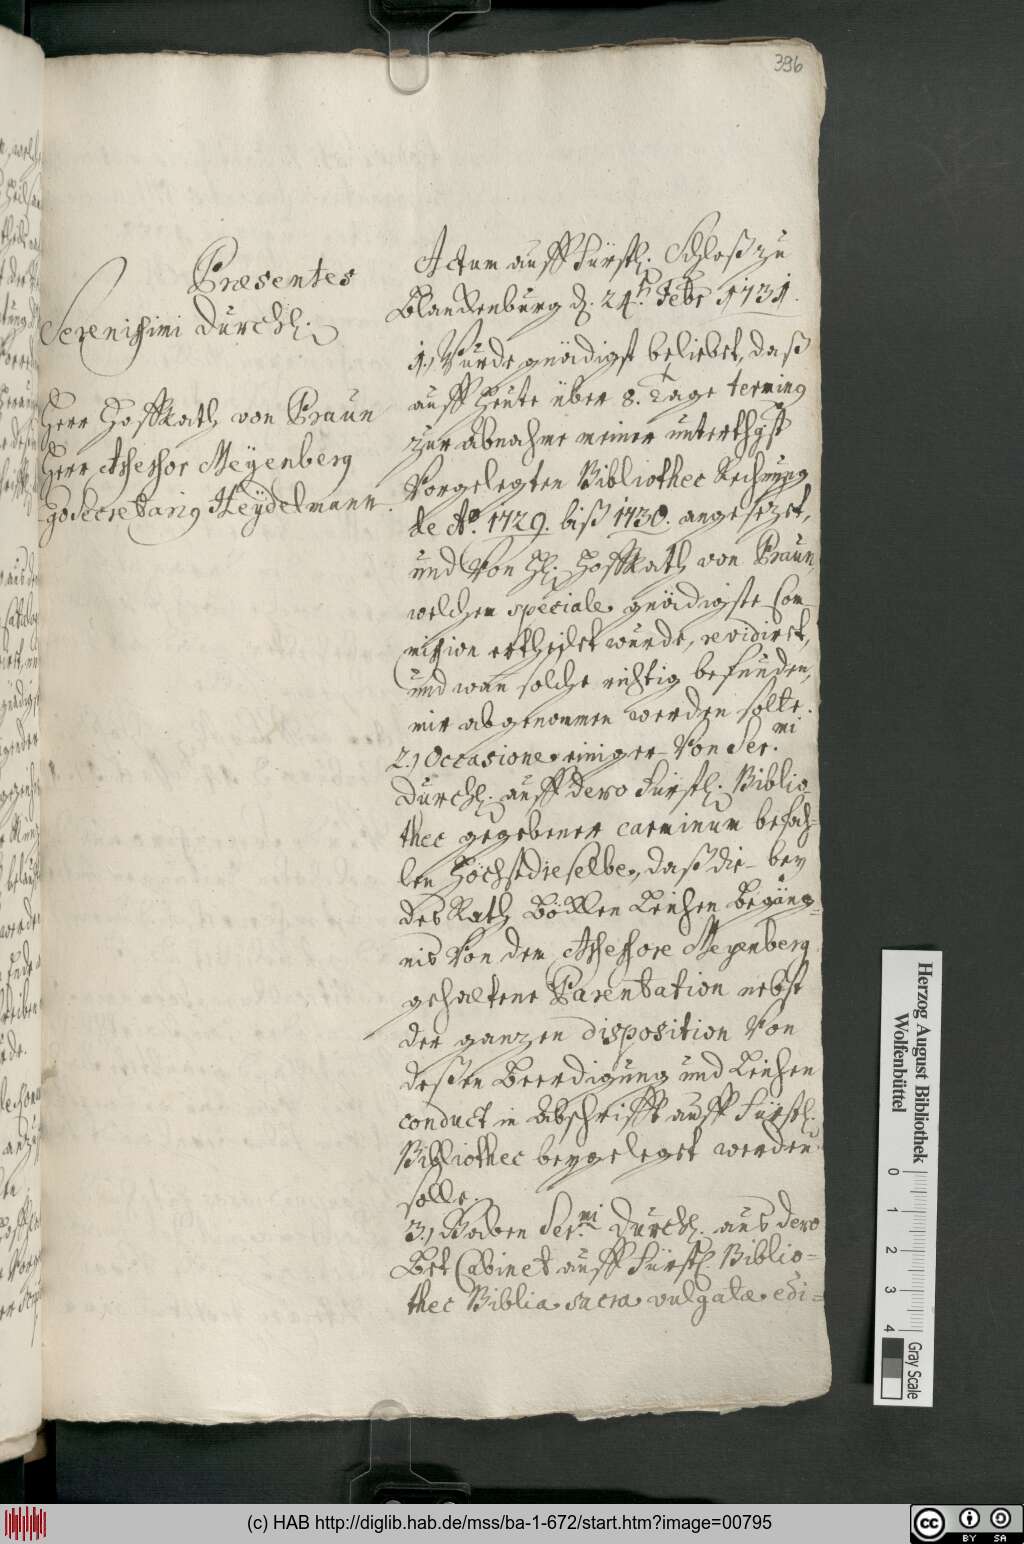 396
Præsentes
Serenissimi Durchl.
Herr Hoffrath von Praun
Herr Assessor Meÿenberg
Secretarius Heÿdelmann.
Actum auff Fürstl. Schloß zu
Blanckenburg d. 24t. Febr 1731.
1.) Wurde gnädigst beliebet, daß
auff heute über 8. Tage terminus
zur abnahme meiner unterthgst
Vorgelegten Bibliothec Rechnung
de Ao. 1729. biß 1730. angesezet,
und Von H. Hoffrath von Praun,
welchem speciale gnädigste Com-
mission ertheilet wurde, revidiret,
und wan solche richtig befunden,
mir abgenommen werden solte.
2.) Occasione einiger Von Ser.mi
Durchl. auff Dero Fürstl. Biblio-
thec gegebener carminum befah-
len Höchstdieselbe, daß die bey
des Rath Böcklen Leichen Begäng-
nis Von dem Assessore Meyenberg
gehaltene Parentation nebst
der ganzen disposition Von
deßen Beerdigung und Leichen
conduct in Abschrifft auff Fürstl.
Bibliothec beygeleget werden
solle.
3.) Haben Ser.mi Durchl. aus dero
Bet Cabinet auff Fürstl. Biblio-
thec Biblia sacra vulgatæ edi-
Herzog August Bibliothek
Wolfenbüttel
0 1 2 3 4
Gray Scale
(c) HAB http://diglib.hab.de/mss/ba-1-672/start.htm?image=00795
cc BY SA